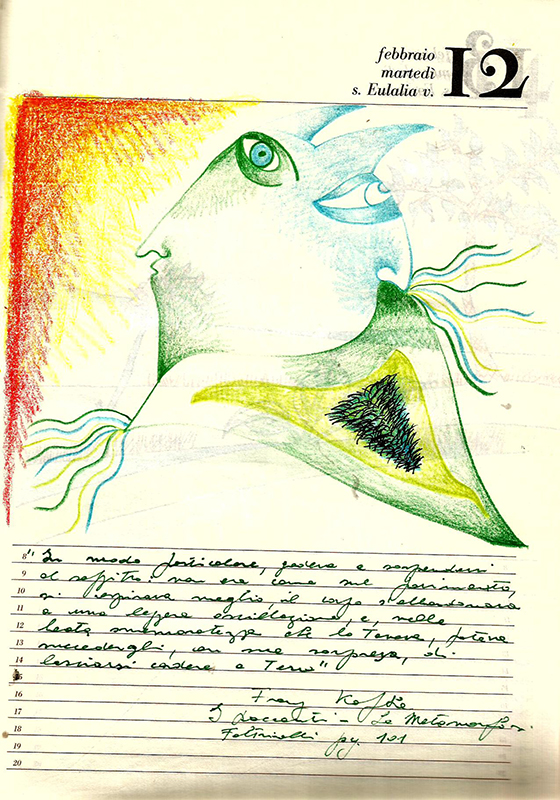 febbraio
martedì
s. Eulalia v.
12
8 "In modo particolare, godeva a sospendersi
9 al soffitto: non era come sul pavimento,
10 si respirava meglio, il corpo s'abbandonava
11 a una leggera oscillazione, e, nella
12 beata smemoratezza che lo teneva, poteva
13 succedergli, con sua sorpresa, di
14 lasciarsi cadere a Terra"
15
16 Franz Kafka
17 I Racconti - La Metamorfosi
18 Feltrinelli pg. 101
19
20